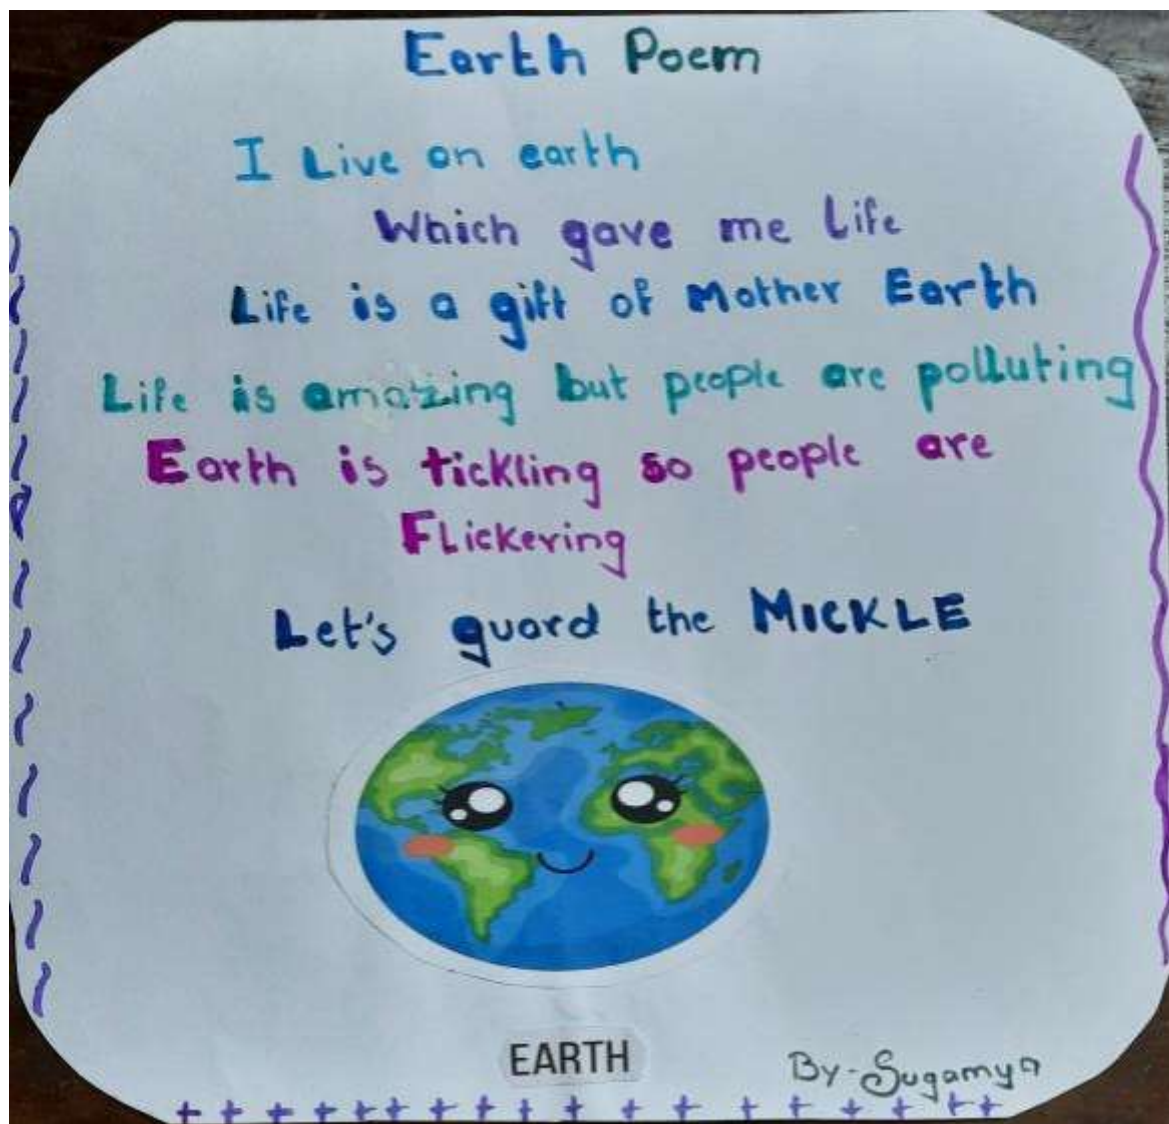 Earth Poem
I Live on earth
Which gave me Life
Life is a gift of Mother Earth
Life is amazing but people are polluting
Earth is tickling so people are
Flickering
Let's guard the MICKLE
EARTH
By-Sugamya